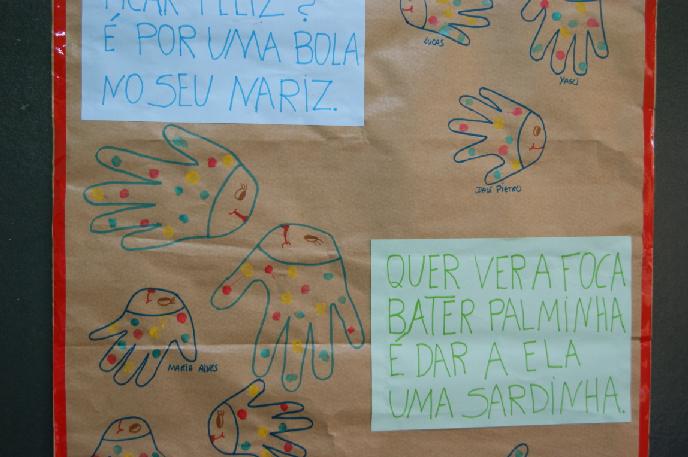 FICAR FELIZ?
É POR UMA BOLA
NO SEU NARIZ.
LUCAS
YASCI
JOSÉ PIETRO
QUER VER A FOCA
BATER PALMINHA
É DAR A ELA
UMA SARDINHA.
MARIA ALVES